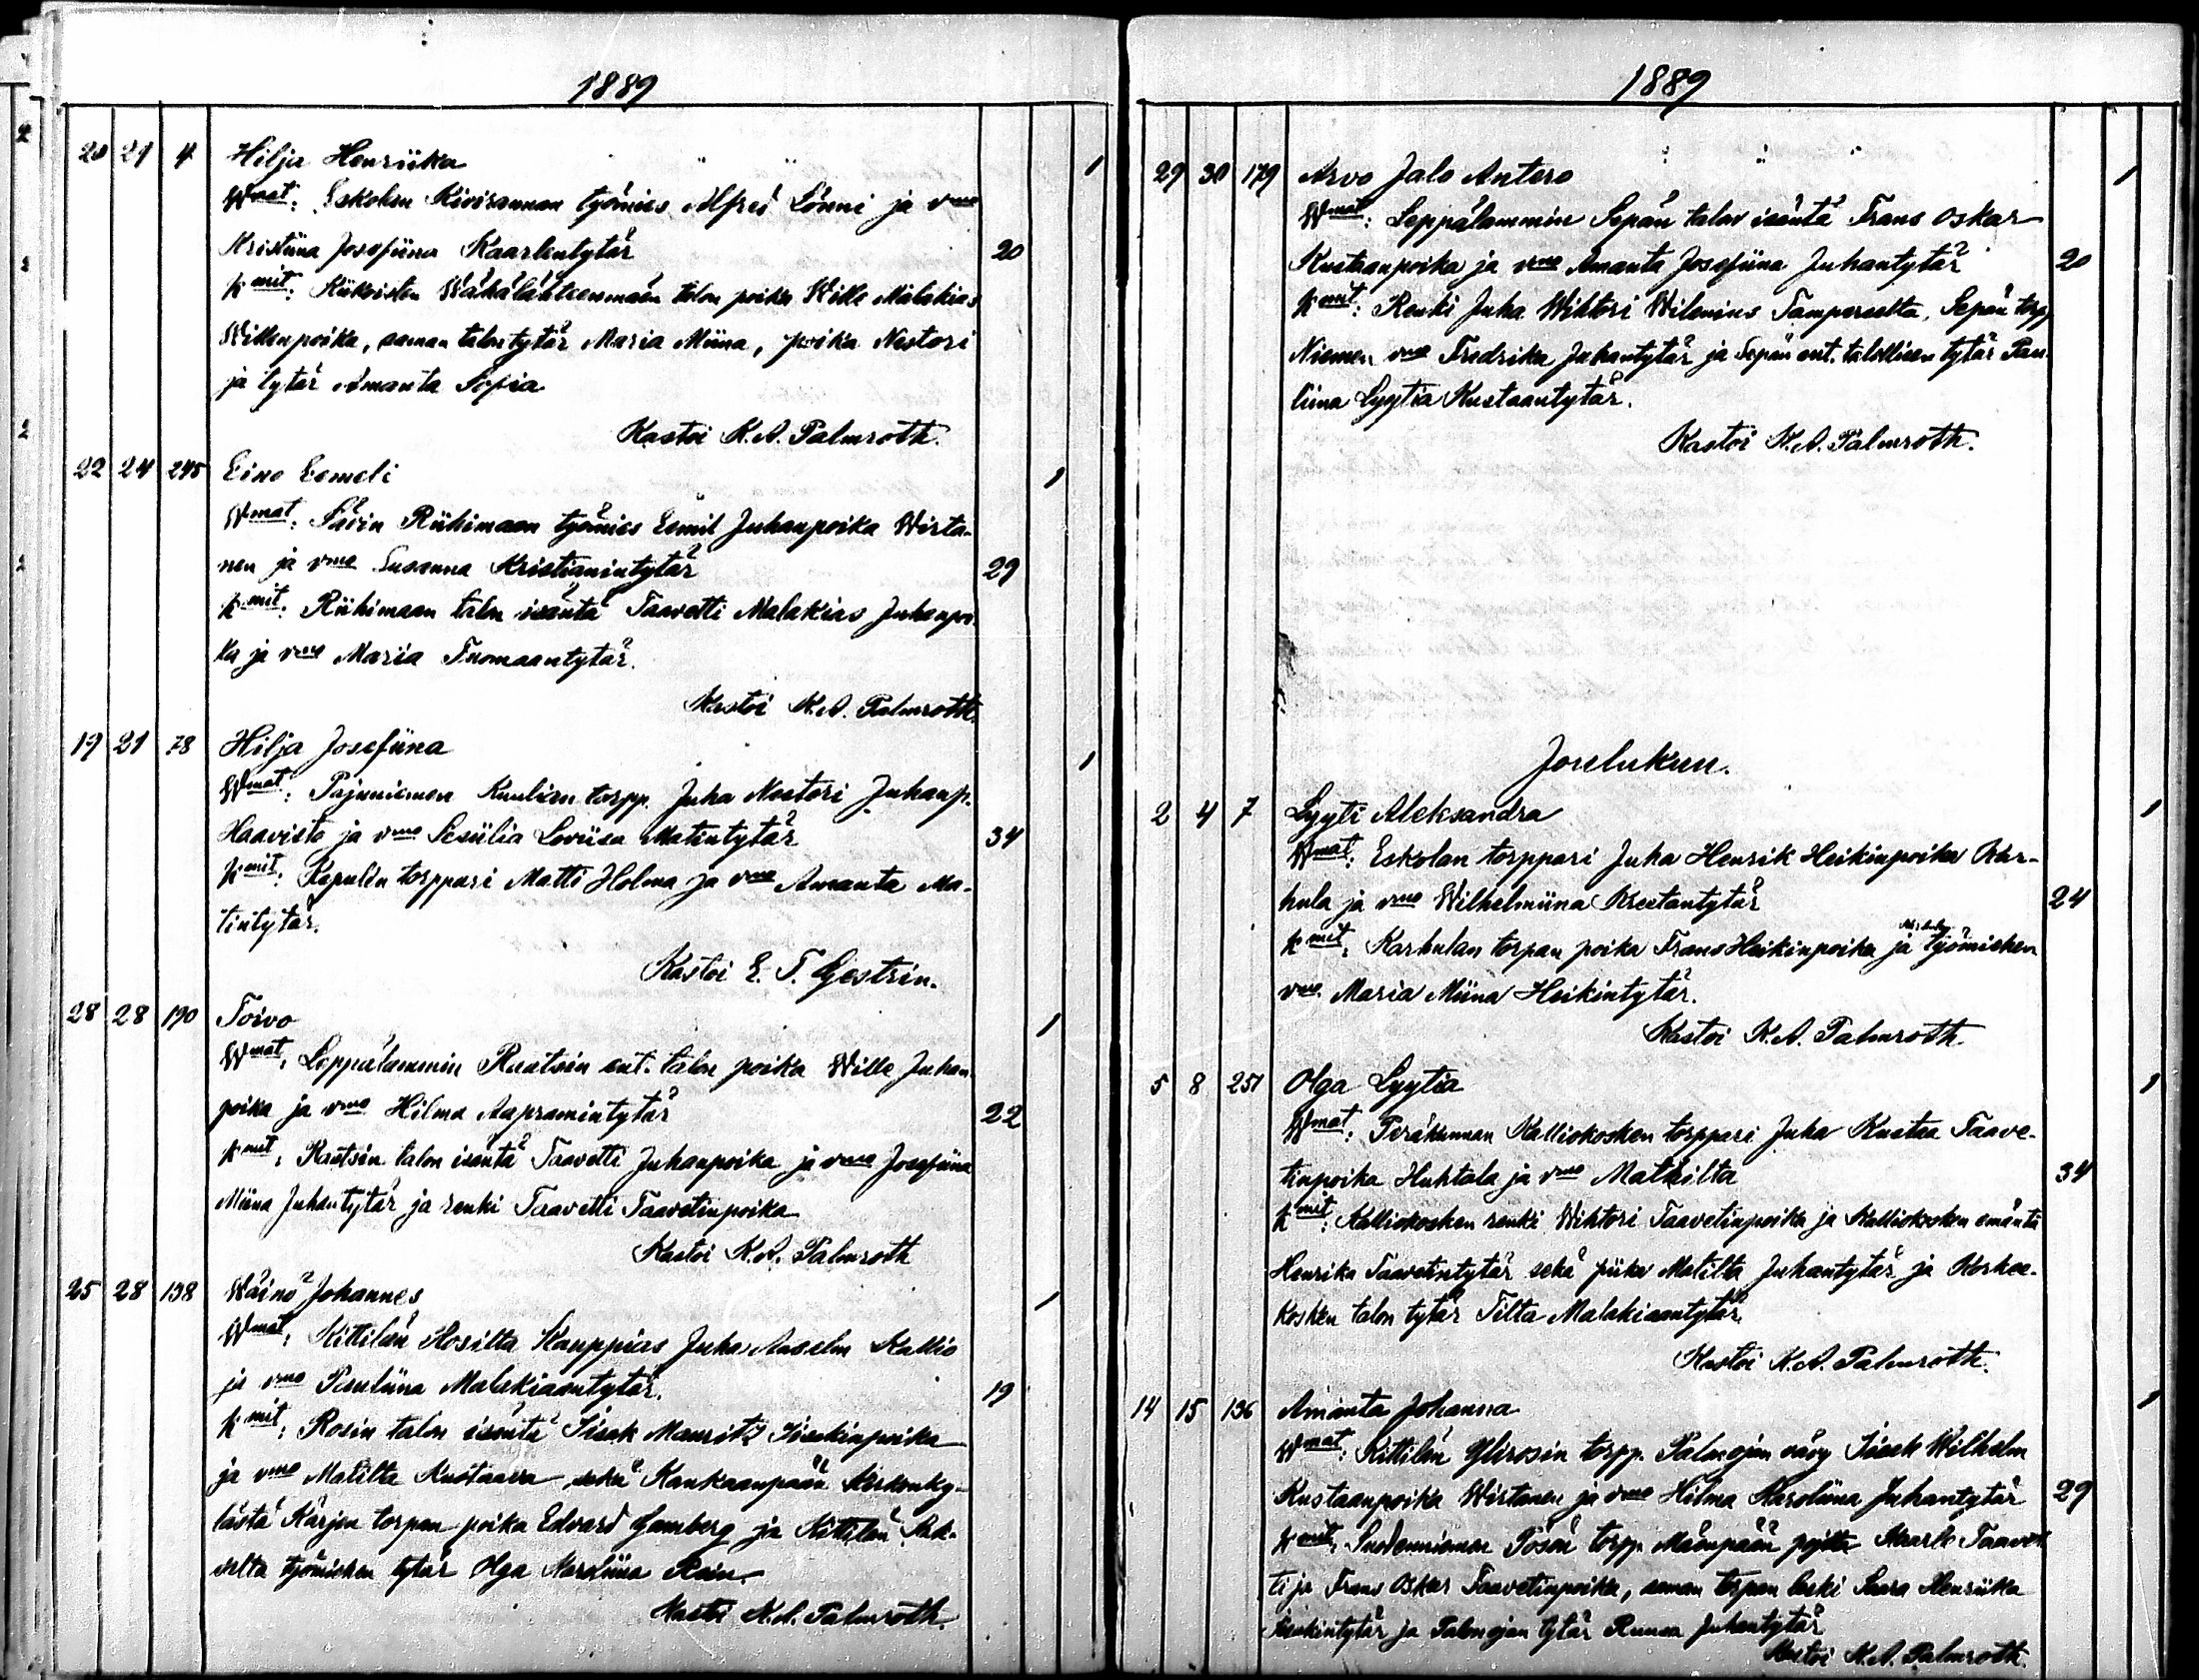 1889
20 21 4 Hilja Henriika 1
Wmat: Eskolan Kivirannan työmies Alfred Lönni ja vmo
Kristiina Josefiina Kaarlentytär 20
kmit: Riikoisten Wähälähteenmäen talon poika Wille Malakias
Willenpoika, saman talon tytär Maria Miina, poika Nestori
ja tytär Amanta Sofia
Kastoi K. A. Palmroth.
22 24 245 Eino Eemeli 1
Wmat: Sävin Riihimaan työmies Eemil Juhanpoika Wirta-
nen ja vmo Susanna Kristianintytär 29
kmit: Riihimaan talon isäntä Taavetti Malakias Juhanpoi-
ka ja vmo Maria Tuomaantytär.
Kastoi K. A. Palmroth.
19 21 78 Hilja Josefiina 1
Wmat: Pajuniemen Kuulian torpp. Juha Nestori Juhanp.
Haavisto ja vmo Sesiilia Loviisa Matintytär 34
kmit: Kepulin torppari Matti Holma ja vmo Amanta Ma-
tintytär.
Kastoi E. T. Gestrin.
28 28 190 Toivo 1
Wmat: Leppälammin Raatsin ent. talon poika Wille Juhan-
poika ja vmo Hilma Aapramintytär 22
kmit: Raatsin talon isäntä Taavetti Juhanpoika ja vmo Josefiina
Miina Juhantytär ja renki Taavetti Taavetinpoika
Kastoi K. A. Palmroth
25 28 138 Wäinö Johannes 1
Wmat: Kittilän Rosilta Kauppias Juha Anselm Kallio
ja vmo Pauliina Malakiaantytär. 19
kmit: Rosin talon isäntä Iisak Mauritz Iisakinpoika
ja vmo Matilta Kustaava sekä Kankaanpään Kirkonky-
lästä Kärjen torpan poika Edvard Gamberg ja Kittilän
työmiehen tytär Olga Karoliina Rein.
Kastoi K. A. Palmroth.
1889
29 30 179 Arvo Jalo Antero 1
Wmat: Leppälammin Sepän talon isäntä Frans Oskar
Kustaanpoika ja vmo Amanta Josefiina Juhantytär 20
kmit: Renki Juha Wihtori Wilenius Tampereelta, Sepän torp.
Niemen vmo Fredrika Juhantytär ja Sepän ent. talollisen tytär Pau-
liina Lyytia Kustaantytär.
Kastoi K. A. Palmroth.
Joulukuu.
2 4 7 Lyyti Aleksandra 1
Wmat: Eskolan torppari Juha Henrik Heikinpoika Kar-
hula ja vmo Wilhelmiina Kreetantytär 24
kmit: Karhulan torpan poika Frans Heikinpoika ja työmiehen
vmo Maria Miina Heikintytär.
Kastoi K. A. Palmroth.
5 8 251 Olga Lyytia 1
Wmat: Peräkunnan Kalliokosken torppari Juha Kustaa Taave-
tinpoika Huhtala ja vmo Mathilta 34
kmit: Kalliokosken renki Wihtori Taavetinpoika ja Kalliokosken emäntä
Henrika Taavetintytär sekä piika Matilta Juhantytär ja Koskee-
kosken talon tytär Tilta Malakiaantytär.
Kastoi K. A. Palmroth.
14 15 136 Amanta Johanna 1
Wmat: Kittilän Ylirosin torpp. Palmojan vävy Iisak Wilhelm
Kustaanpoika Wirtanen ja vmo Hilma Karoliina Juhantytär 29
kmit: Suodenniemen Pösön torpp. Mäenpään pojat Kaarle Taavet-
ti ja Frans Oskar Taavetinpoika, saman torpan leski Saara Henriika
Iisakintytär ja Palmojan tytär Ruusa Juhantytär
Kastoi K. A. Palmroth.